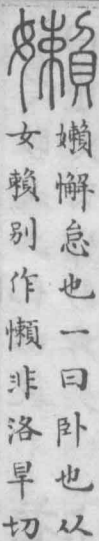 嬾
嬾懈怠也一曰卧也从
女賴別作懶非洛旱切